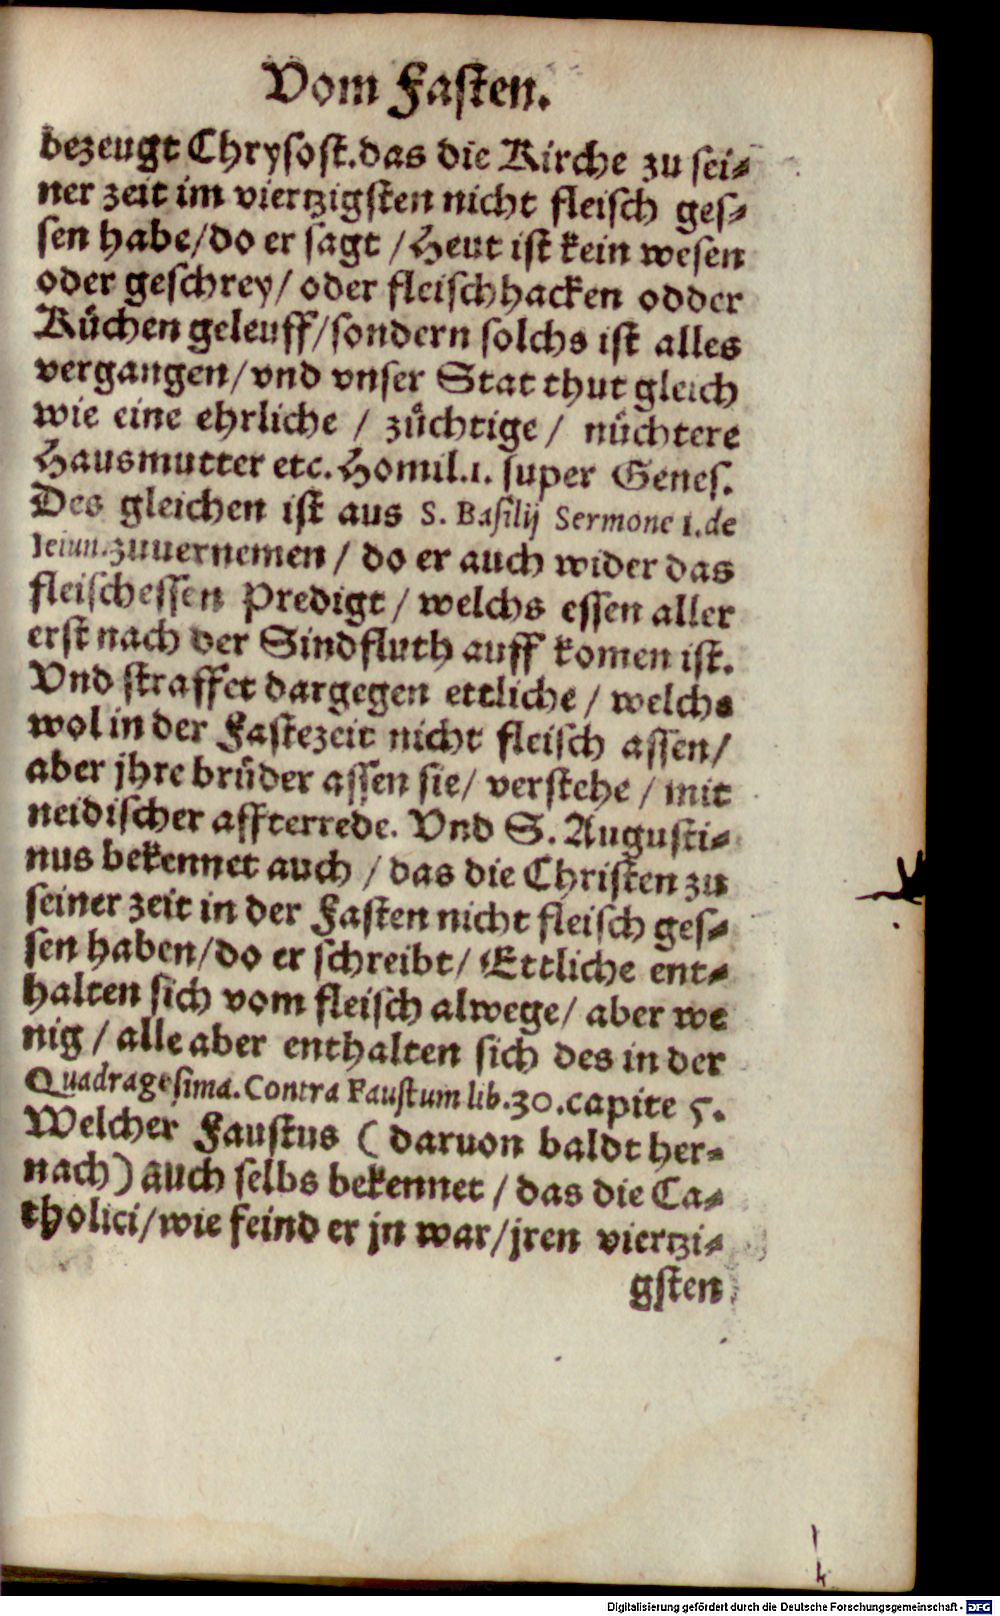 Vom Fasten.
bezeugt Chrysost. das die Kirche zu sei⸗
ner zeit im viertzigsten nicht fleisch ges⸗
sen habe/ do er sagt / Heut ist kein wesen
oder geschrey/ oder fleischhacken odder
Küchen geleuff/ sondern solchs ist alles
vergangen/ vnd vnser Stat thut gleich
wie eine ehrliche / züchtige / nüchtere
Hausmutter etc. Homil. 1. super Genes.
Des gleichen ist aus S. Basilij Sermone 1. de
Ieiun. zuuernemen / do er auch wider das
fleischessen Predigt / welchs essen aller
erst nach der Sindfluth auff komen ist.
Vnd straffet dargegen ettliche / welchs
wol in der Fastezeit nicht fleisch assen/
aber jhre brüder assen sie/ verstehe / mit
neidischer affterrede. Vnd S. Augusti⸗
nus bekennet auch / das die Christen zu
seiner zeit in der Fasten nicht fleisch ges⸗
sen haben/ do er schreibt/ Ettliche ent⸗
halten sich vom fleisch alwege/ aber we
nig / alle aber enthalten sich des in der
Quadragesima. Contra Faustum lib. 30. capite 5.
Welcher Faustus ( daruon baldt her⸗
nach) auch selbs bekennet / das die Ca⸗
tholici/ wie feind er jn war/ jren viertzi⸗
gsten
Digitalisierung gefördert durch die Deutsche Forschungsgemeinschaft - DFG